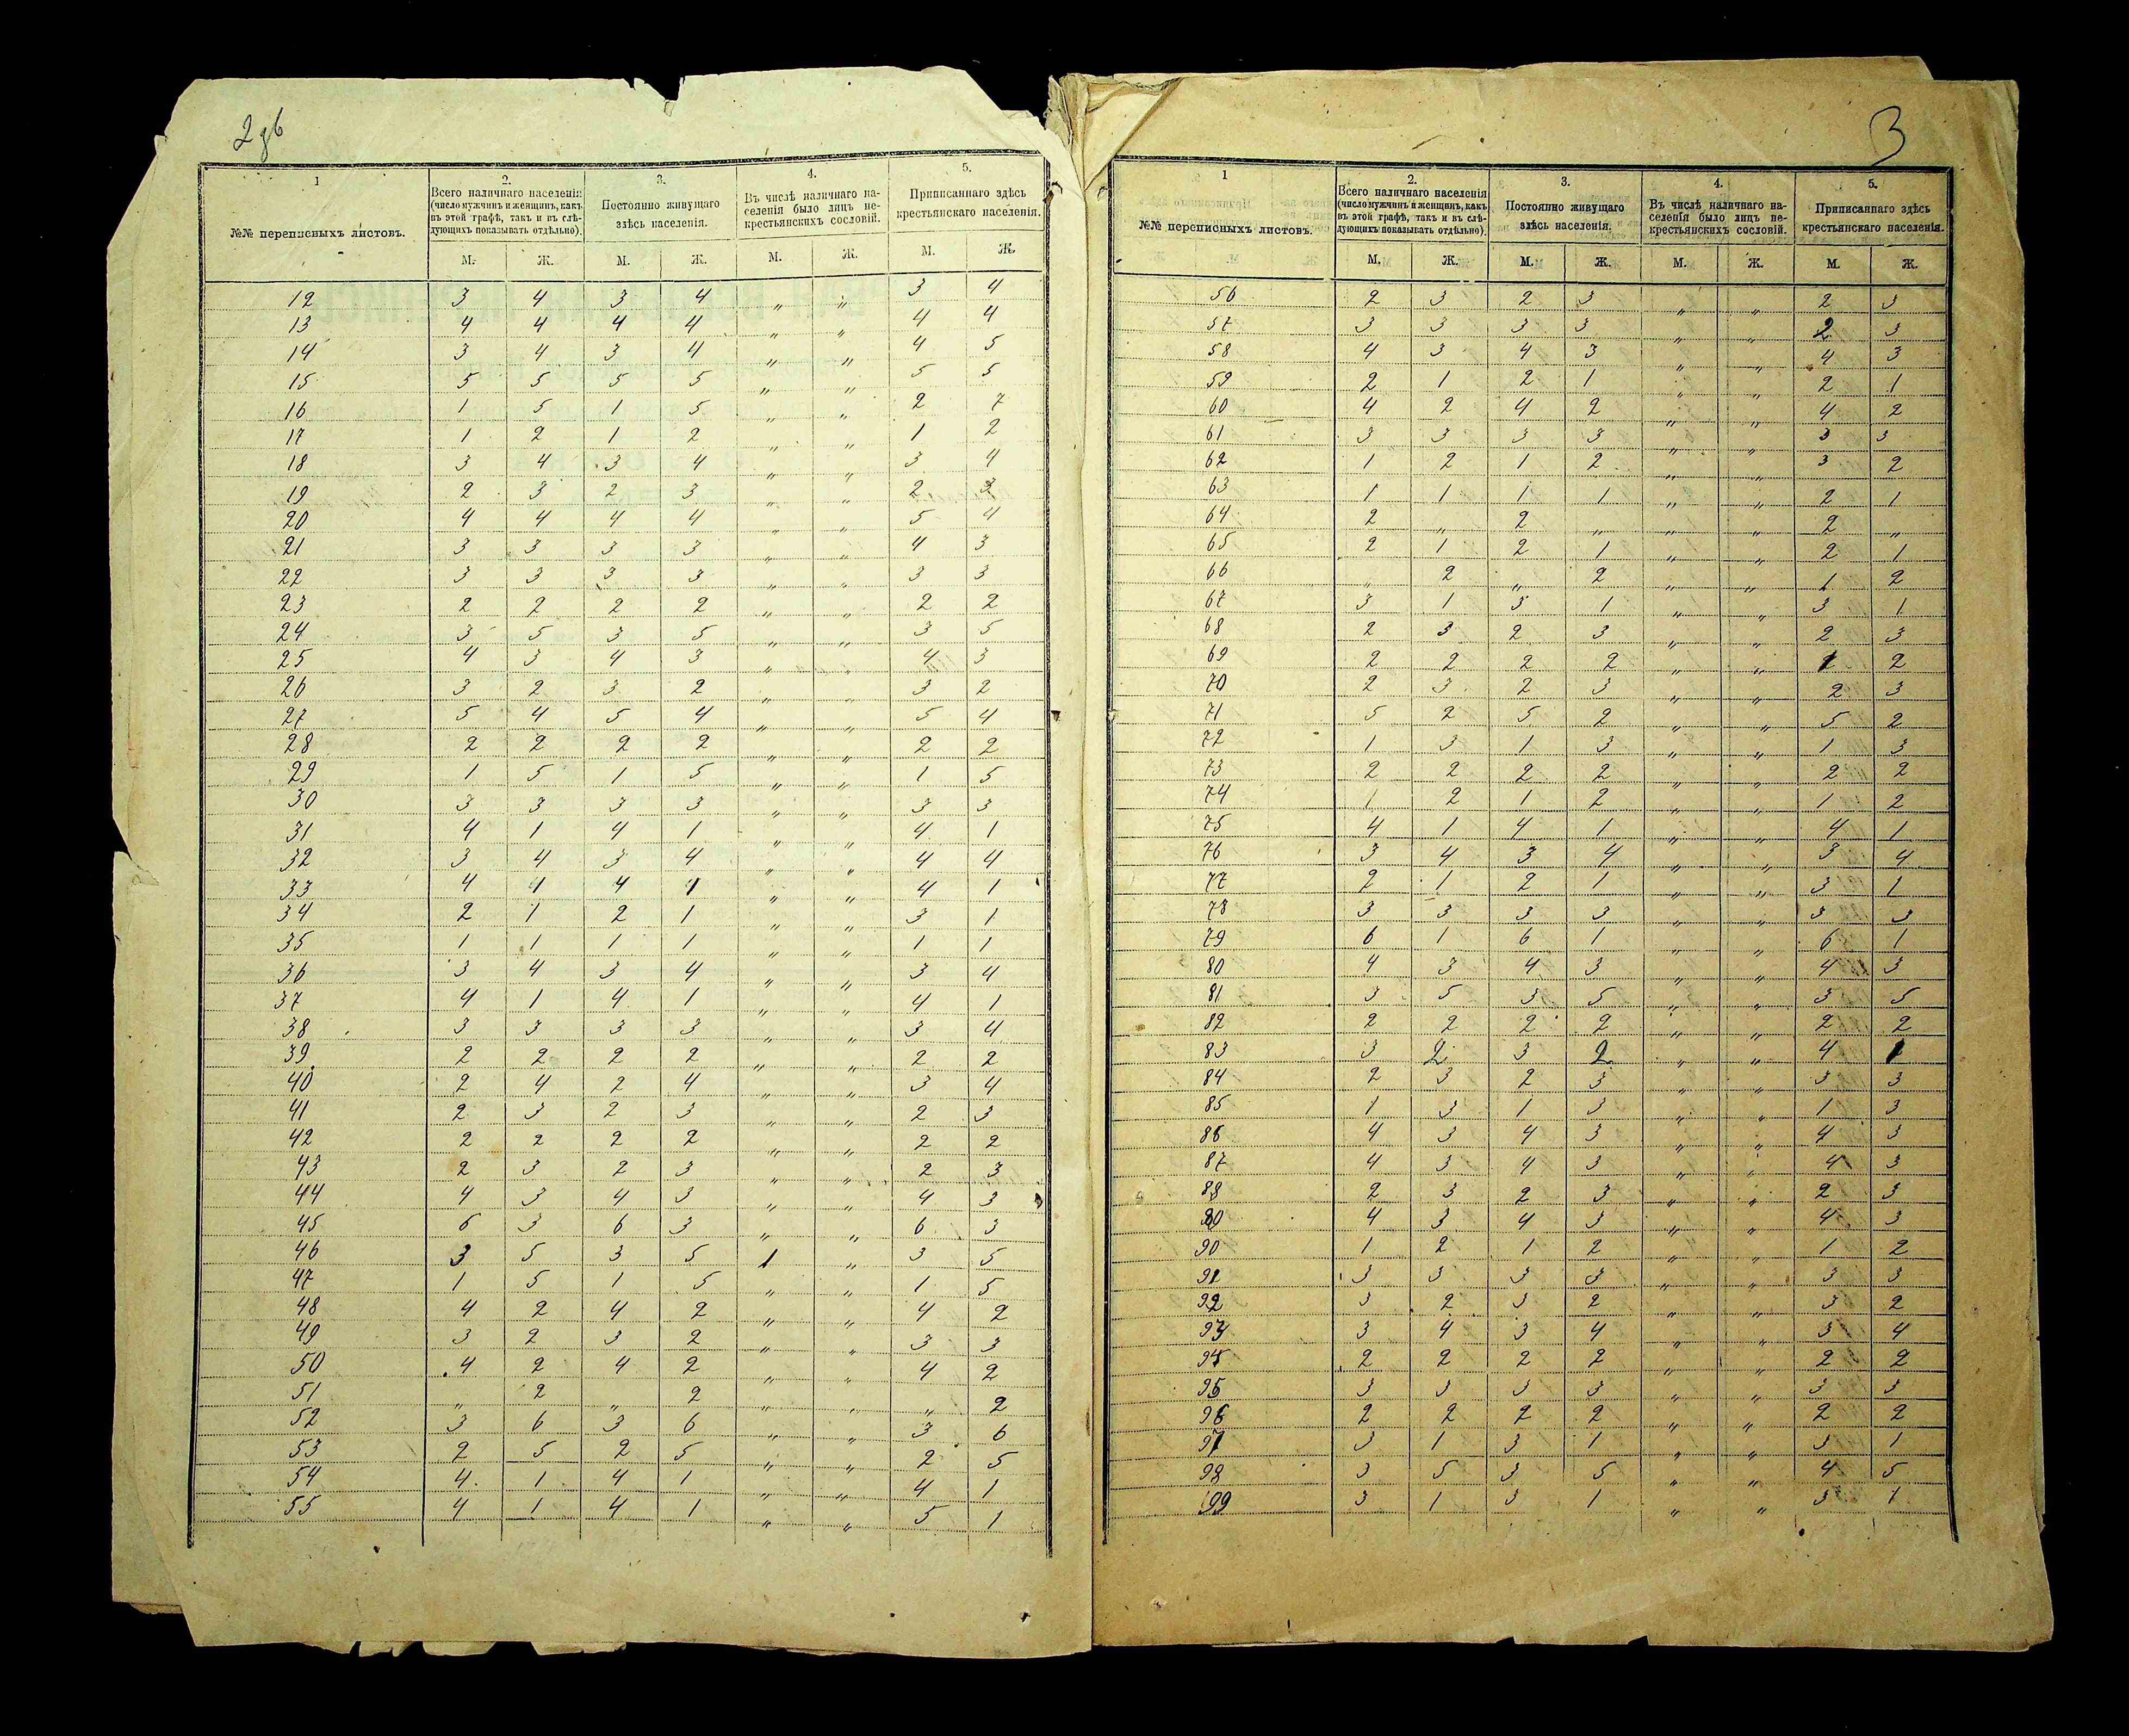 2 об
1
2.
3.
4.
5.
№№ переписныхъ листовъ.
Всего наличнаго населенія
(число мужчинъ и женщинъ, какъ
въ этой графѣ, такъ и въ слѣ-
дующихъ показывать отдѣльно).
Постоянно живущаго
здѣсь населенія.
Въ числѣ наличнаго на-
селенія было лицъ не-
крестьянскихъ сословій.
Приписаннаго здѣсь
крестьянскаго населенія.
М. Ж. М. Ж. М. Ж. М. Ж.
12 3 4 3 4 " " 3 4
13 4 4 4 4 " " 4 4
14 3 4 3 4 " " 4 5
15 5 5 5 5 " " 5 5
16 1 5 1 5 " " 2 7
17 1 2 1 2 " " 1 2
18 3 4 3 4 " " 3 4
19 2 3 2 3 " " 2 3
20 4 4 4 4 " " 5 4
21 3 3 3 3 " " 4 3
22 3 3 3 3 " " 3 3
23 2 2 2 2 " " 2 2
24 3 5 3 5 " " 3 5
25 4 3 4 3 " " 4 3
26 3 2 3 2 " " 3 2
27 5 4 5 4 " " 5 4
28 2 2 2 2 " " 2 2
29 1 5 1 5 " " 1 5
30 3 3 3 3 " " 3 3
31 4 1 4 1 " " 4 1
32 3 4 3 4 " " 4 4
33 4 1 4 1 " " 4 1
34 2 1 2 1 " " 3 1
35 1 1 1 1 " " 1 1
36 3 4 3 4 " " 3 4
37 4 1 4 1 " " 4 1
38 3 3 3 3 " " 3 4
39 2 2 2 2 " " 2 2
40 2 4 2 4 " " 3 4
41 2 3 2 3 " " 2 3
42 2 2 2 2 " " 2 2
43 2 3 2 3 " " 2 3
44 4 3 4 3 " " 4 3
45 6 3 6 3 " " 6 3
46 3 5 3 5 1 " 3 5
47 1 5 1 5 " " 1 5
48 4 2 4 2 " " 4 2
49 3 2 3 2 " " 3 3
50 4 2 4 2 " " 4 2
51 " 2 " 2 " " " 2
52 3 6 3 6 " " 3 6
53 2 5 2 5 " " 2 5
54 4 1 4 1 " " 4 1
55 4 1 4 1 " " 5 1
3
1
2.
3.
4.
5.
№№ переписныхъ листовъ.
Всего наличнаго населенія
(число мужчинъ и женщинъ, какъ
въ этой графѣ, такъ и въ слѣ-
дующихъ показывать отдѣльно).
Постоянно живущаго
здѣсь населенія.
Въ числѣ наличнаго на-
селенія было лицъ не-
крестьянскихъ сословій.
Приписаннаго здѣсь
крестьянскаго населенія.
М. Ж. М. Ж. М. Ж. М. Ж.
56 2 3 2 3 " " 2 3
57 3 3 3 3 " " 2 3
58 4 3 4 3 " " 4 3
59 2 1 2 1 " " 2 1
60 4 2 4 2 " " 4 2
61 3 3 3 3 " " 3 3
62 1 2 1 2 " " 3 2
63 1 1 1 1 " " 2 1
64 2 " 2 " " " 2 "
65 2 1 2 1 " " 2 1
66 " 2 " 2 " " 1 2
67 3 1 3 1 " " 3 1
68 2 3 2 3 " " 2 3
69 2 2 2 2 " " 2
70 2 3 2 3 " " 2 3
71 5 2 5 2 " " 5 2
72 1 3 1 3 " " 1 3
73 2 2 2 2 " " 2 2
74 1 2 1 2 " " 1 2
75 4 1 4 1 " " 4 1
76 3 4 3 4 " " 3 4
77 2 1 2 1 " " 3 1
78 3 3 3 3 " " 3 3
79 6 1 6 1 " " 6 1
80 4 3 4 3 " " 4 3
81 3 5 3 5 " " 3 5
82 2 2 2 2 " " 2 2
83 3 2 3 2 " " 4
84 2 3 2 3 " " 3 3
85 1 3 1 3 " " 1 3
86 4 3 4 3 " " 4 3
87 4 3 4 3 " " 4 3
88 2 3 2 3 " " 2 3
4 3 4 3 " " 4 3
90 1 2 1 2 " " 1 2
91 3 3 3 3 " " 3 3
92 3 2 3 2 " " 3 2
93 3 4 3 4 " " 3 4
94 2 2 2 2 " " 2 2
95 3 3 3 3 " " 3 3
96 2 2 2 2 " " 2 2
97 3 1 3 1 " " 3 1
98 3 5 3 5 " " 4 5
99 3 1 3 1 " " 3 1